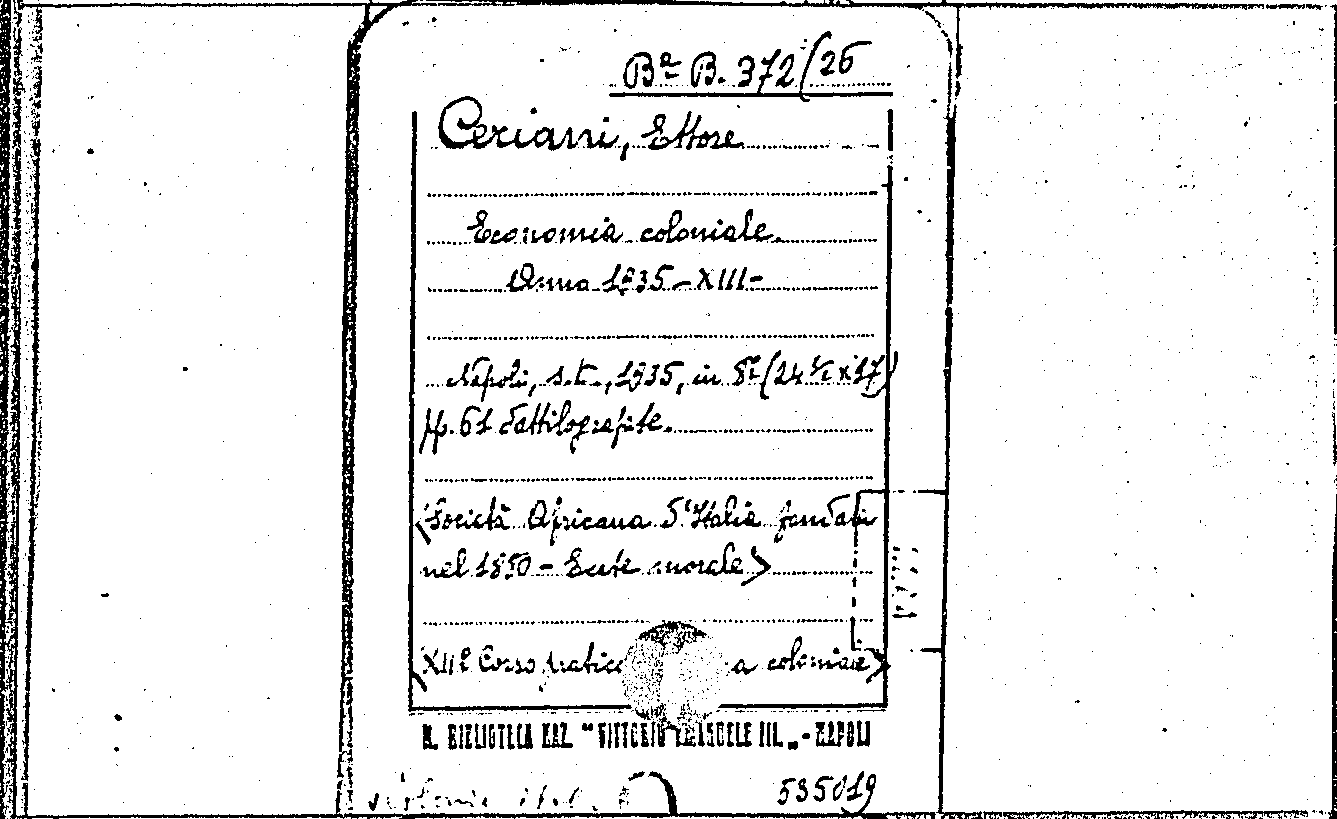 Bª B. 372/26
Ceriani, Ettore
Economia coloniale.
Anno 1935-XIII-
Napoli, s.t., 1935, in 8º (24 ½ x 17)
pp. 61 dattilografate.
(Società Africana d'Italia fondata
nel 1880 - Ente morale)
(XIIº Corso pratico a coloniale)
R. BIBLIOTECA NAZ. "VITTORIO EMANUELE III." - NAPOLI
535019